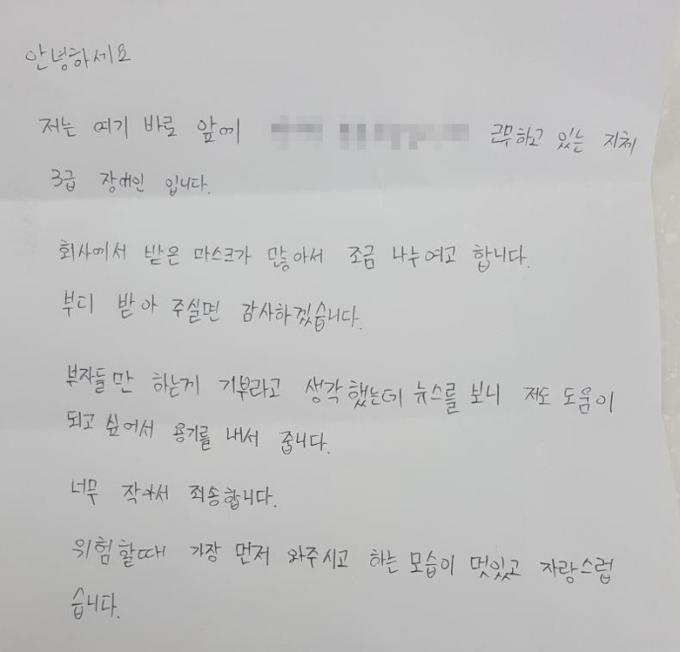 안녕하세요
저는 여기 바로 앞에 근무하고 있는 지체
3급 장애인 입니다.
회사에서 받은 마스크가 많아서 조금 나누려고 합니다.
부디 받아 주실면 감사하겠습니다.
부자들만 하는게 기부라고 생각했는데 뉴스를 보니 저도 도움이
되고 싶어서 용기를 내서 줍니다.
너무 작아서 죄송합니다.
위험할때 가장 먼저 와주시고 하는 모습이 멋있고 자랑스럽
습니다.